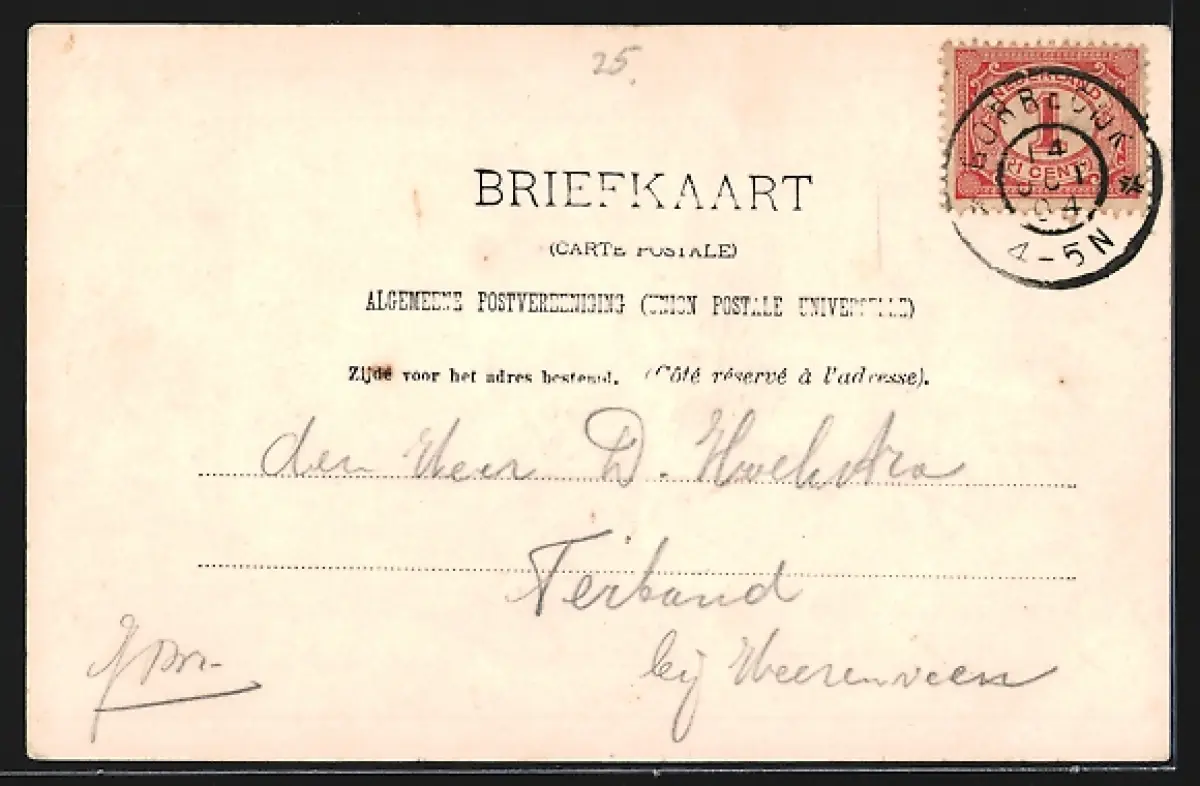 25.
NEDERLAND
1
1 CENT
GORREDIJK
14
OCT
04
4-5N
BRIEFKAART
(CARTE POSTALE)
ALGEMEENE POSTVEREENIGING (UNION POSTALE UNIVERSELLE)
Zijde voor het adres bestemd. (Côté réservé à l'adresse).
den Heer D. Hoekstra
Terband
bij Heerenveen